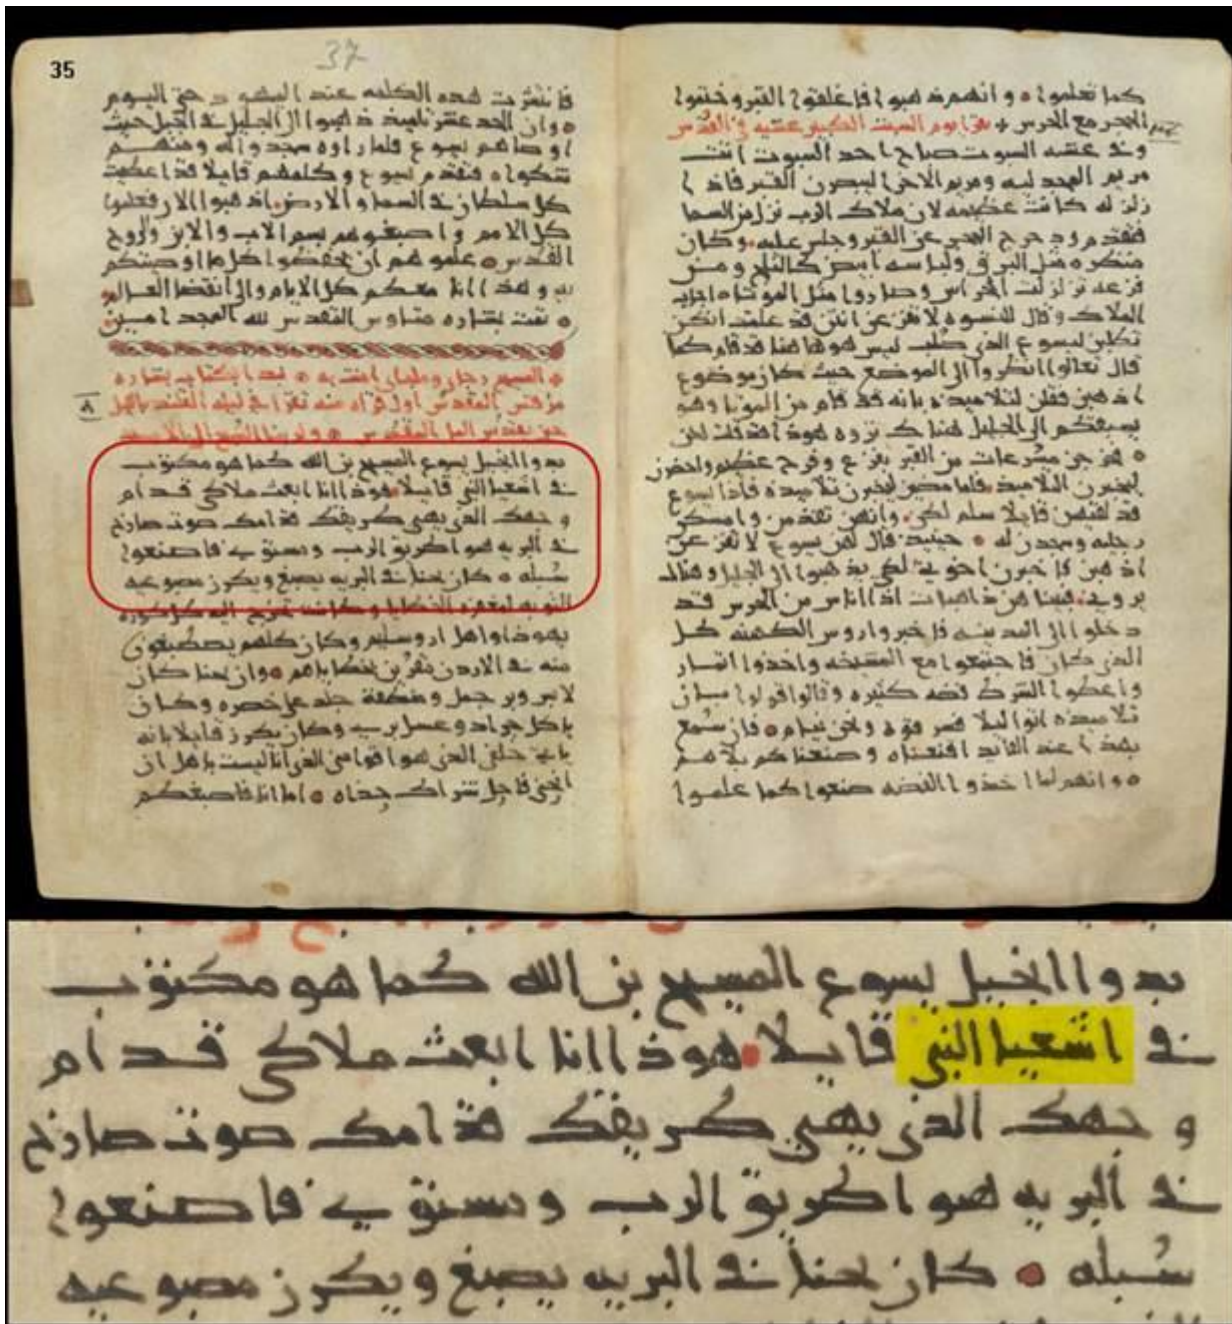 كما تعلموا • وانهم ذهبوا فاغلقوا القبر وختموا
الحجر مع الحرس
وفي عشيه السبوت صباح احد السبوت اتت
مريم المجدليه ومريم الاخرى ليبصرن القبر فاذا
زلزله كانت عظيمه لان ملاك الرب نزل من السما
فتقدم ودحرج الحجر عن القبر وجلس عليه • وكان
منظره مثل البرق ولباسه ابيض كالثلج ومن
فزعه تزلزلت الحراس وصاروا مثل الموتى • اجابه
الملاك وقال للنسوه لا تفزعن انتن قد علمت انكن
تطلبن ليسوع الذي صلب ليس هو هاهنا قد قام كما
قال تعالوا انظروا الى الموضع حيث كان موضوع
اذهبن فقلن لتلاميذه بانه قد قام من الموتا وهو
يسبقكم الى الجليل هناك تروه هوذا قد قلت لكن
• فخرجن مسرعات من القبر بفزع وفرح عظيم واحضرن
ليخبرن التلاميذ • فلما مضين ليخبرن تلاميذه فاذا يسوع
قد لقيهن قايلا سلم لكن • وانهن تقدمن وامسكن
رجليه وسجدن له • حينيذ قال لهن يسوع لا تفزعن
اذهبن فاخبرن اخوتي لكي يذهبوا الى الجليل وهناك
يروني • فبينا هن ذاهبات اذا اناس من الحرس قد
دخلوا الى المدينه فاخبروا روس الكهنه كل
الذي كان فاجتمعوا مع المشيخه واخذوا
واعطوا الشرط فضه كثيره وقالوا قولوا بيان
تلاميذه اتوا ليلا فسرقوه ونحن نيام • فان سمع
بهذا عند القايد اقنعناه وصنعناكم بلا هم
• وانهم لما اخذوا الفضه صنعوا كما علموا
35
37
فانتشرت هذه الكلمه عند اليهود حتى اليوم
• وان الحد عشر تلميذ ذهبوا الى الجليل في الجبل حيث
اوصاهم يسوع فلما راوه سجدوا له ومنهم
شكوا • فتقدم يسوع وكلمهم قايلا قد اعطيت
كل سلطان في السما والارض • اذهبوا الان فعلموا
كل الامم واصبغوهم بسم الاب والابن وروح
القدس • علموهم ان يحفظوا كل ما اوصيتكم
به وهذا انا معكم كل الايام والى انقضا العالم
• تمت بشاره متاوس القديس لله المجد امين
• المسيح رجاي • بدا بكتاب بشاره
بدو انجيل يسوع المسيح بن الله كما هو مكتوب
في اشعيا النبي قايلا • هوذا انا ابعث ملاكي قدام
وجهك الذي يهيي طريقك قدامك صوت صارخ
في البريه هيوا طريق الرب ومستوي فاصنعوا
سبله • كان يحنا في البريه يصبغ ويكرز مصبوعيه
التوبه لمغفره الخطايا وكانت تخرج اليه كل كوره
يهوذا واهل اروسليم وكان كلهم يصطبغون
منه في الاردن مقرين بخطاياهم • وان يحنا كان
لابس وبر جمل ومنطقة جلد على خصره وكان
ياكل جراد وعسل بري وكان يكرز قايلا بانه
ياتي خلفي الذي هو اقوا مني الذي انا ليست باهل ان
انحني فاحل شراك حذاه • اما انا فاصبغكم
بدو انجيل يسوع المسيح بن الله كما هو مكتوب
في اشعيا النبي قايلا • هوذا انا ابعث ملاكي قدام
وجهك الذي يهيي طريقك قدامك صوت صارخ
في البريه هيوا طريق الرب ومستوي فاصنعوا
سبله • كان يحنا في البريه يصبغ ويكرز مصبوعيه